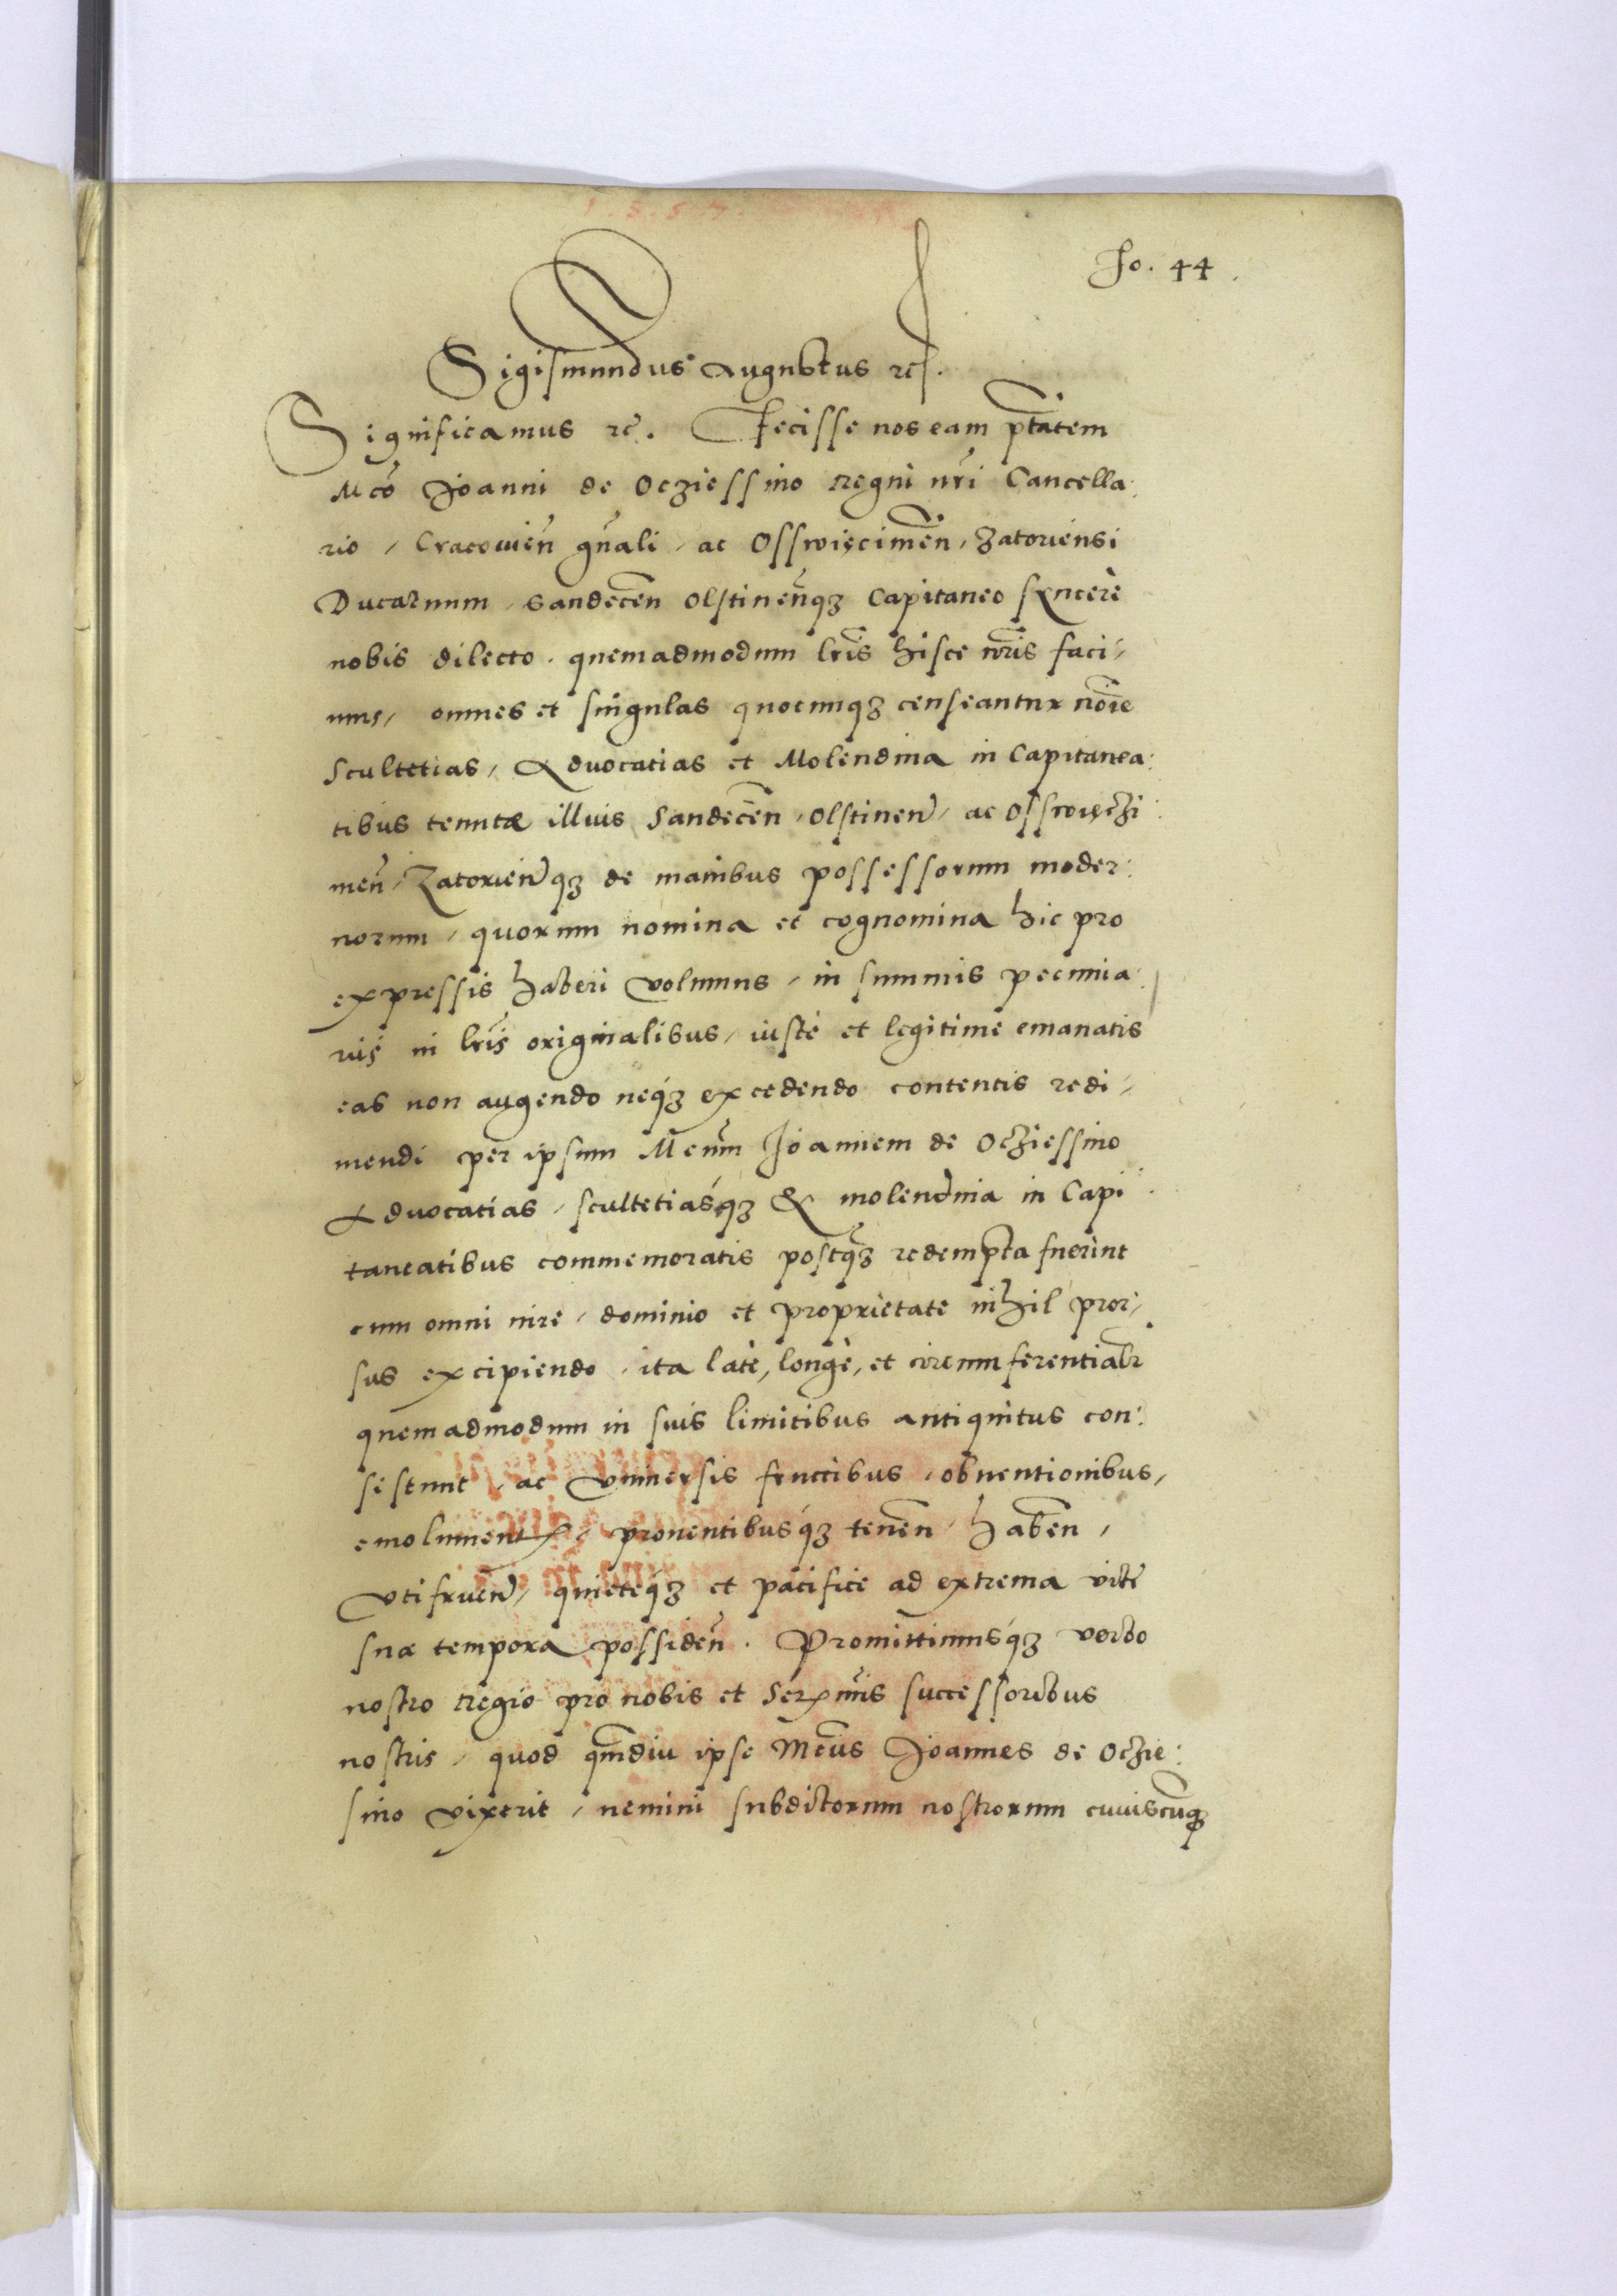 Fo. 44.
Sigismundus Augustus etc.
Significamus etc. Fecisse nos eam ptātem
Mco Joanni de Ocziessino regni nrī Cancella:
rio, Cracovieñ gñali, ac Osswięcimeñ, Zatoriensi
Ducatuum, Sandeceñ Olstineñq3 Capitaneo syncerè
nobis dilecto, quemadmodum lrīs hisce nrīs faci,
mus, omnes et singulas quocunq3 censeantur nōie
Scultetias, Advocatias et Molendina in Capitanea:
tibus tenutæ illius Sandeceñ, Olstineñ, ac Osswięczi:
meñ, Zatorieñq3 de manibus possessorum moder:
norum, quorum nomina et cognomina hic pro
expressis haberi volumus, in summis pecunia:
riis in lrīs originalibus, iustè et legitimè emanatis
eas non augendo neq3 excedendo contentis redi,
mendi per ipsum Mcum Joannem de Ocziessino
Advocatias, scultetiasq3 & molendina in Capi:
taneatibus commemoratis postq3 redempta fuerint
cum omni iure, dominio et proprietate nihil pror,
sus excipiendo, ita latè, longè, et circumferentialr
quemadmodum in suis limitibus antiquitus con:
sistunt, ac universis fructibus, obventionibus,
emolument, proventibusq3 teneñ, habeñ,
utifrueñ, quieteq3 et pacificè ad extrema vitæ
suæ tempora possideñ. Promittimusq3 verbo
nostro regio pro nobis et Serxmis successoribus
nostris, quod qmdiu ipse Mcus Joannes de Oczie:
sino vixerit, nemini subditorum nostrorum cuiuscunq3